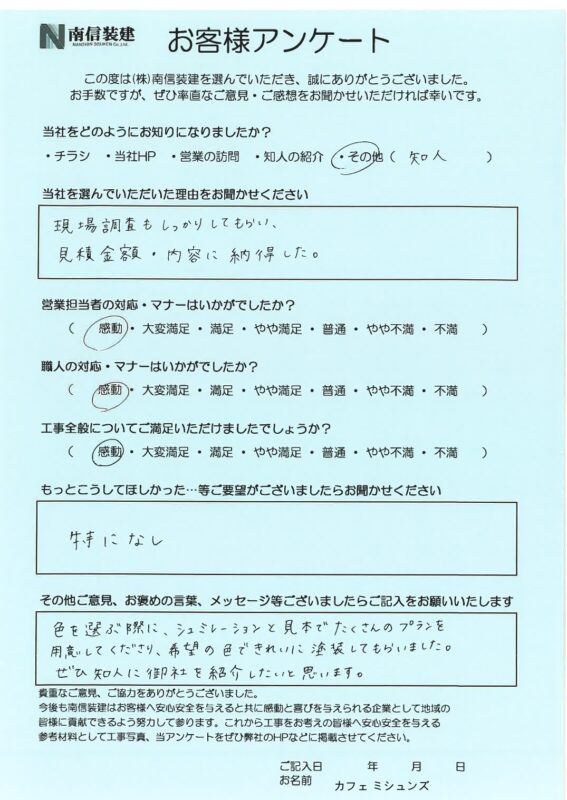 N 南信装建
NANSHIN SOUKEN Co.,Ltd.
お客様アンケート
この度は(株)南信装建を選んでいただき、誠にありがとうございました。
お手数ですが、ぜひ率直なご意見・ご感想をお聞かせいただければ幸いです。
当社をどのようにお知りになりましたか?
・チラシ ・当社HP ・営業の訪問 ・知人の紹介 ・その他( 知人 )
当社を選んでいただいた理由をお聞かせください
現場調査もしっかりしてもらい、
見積金額・内容に納得した。
営業担当者の対応・マナーはいかがでしたか?
( 感動・大変満足・満足・やや満足・普通・やや不満・不満 )
職人の対応・マナーはいかがでしたか?
( 感動・大変満足・満足・やや満足・普通・やや不満・不満 )
工事全般についてご満足いただけましたでしょうか?
( 感動・大変満足・満足・やや満足・普通・やや不満・不満 )
もっとこうしてほしかった…等ご要望がございましたらお聞かせください
特になし
その他ご意見、お褒めの言葉、メッセージ等ございましたらご記入をお願いいたします
色を選ぶ際に、シュミレーションと見本でたくさんのプランを
用意してくださり、希望の色できれいに塗装してもらいました。
ぜひ知人に御社を紹介したいと思います。
貴重なご意見、ご協力をありがとうございました。
今後も南信装建はお客様へ安心安全を与えると共に感動と喜びを与えられる企業として地域の
皆様に貢献できるよう努力して参ります。これから工事をお考えの皆様へ安心安全を与える
参考材料として工事写真、当アンケートをぜひ弊社のHPなどに掲載させてください。
ご記入日 年 月 日
お名前 カフェ ミシュンズ